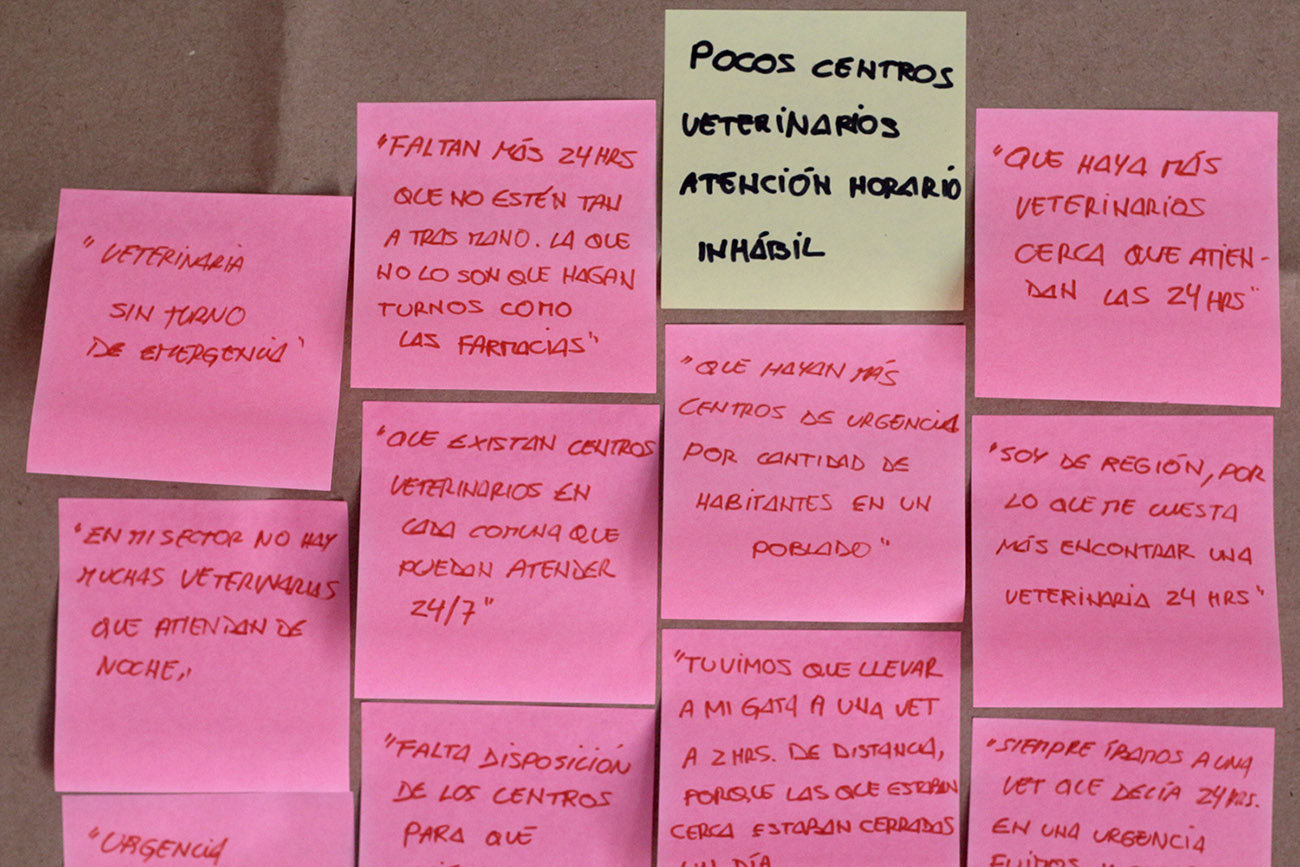 POCOS CENTROS
VETERINARIOS
ATENCIÓN HORARIO
INHÁBIL
"VETERINARIA
SIN TURNO
DE EMERGENCIA"
"EN MI SECTOR NO HAY
MUCHAS VETERINARIAS
QUE ATIENDAN DE
NOCHE"
"URGENCIA
"FALTAN MÁS 24 HRS
QUE NO ESTÉN TAN
A TRAS MANO. LA QUE
NO LO SON QUE HAGAN
TURNOS COMO
LAS FARMACIAS"
"QUE EXISTAN CENTROS
VETERINARIOS EN
CADA COMUNA QUE
PUEDAN ATENDER
24/7"
"FALTA DISPOSICIÓN
DE LOS CENTROS
PARA QUE
"QUE HAYAN MÁS
CENTROS DE URGENCIA
POR CANTIDAD DE
HABITANTES EN UN
POBLADO"
"TUVIMOS QUE LLEVAR
A MI GATA A UNA VET
A 2 HRS. DE DISTANCIA,
PORQUE LAS QUE ESTABAN
CERCA ESTABAN CERRADAS
UN DÍA
"QUE HAYA MÁS
VETERINARIOS
CERCA QUE ATIEN-
DAN LAS 24 HRS"
"SOY DE REGIÓN, POR
LO QUE ME CUESTA
MÁS ENCONTRAR UNA
VETERINARIA 24 HRS"
"SIEMPRE ÍBAMOS A UNA
VET QUE DECÍA 24 HRS.
EN UNA URGENCIA
FUIMOS